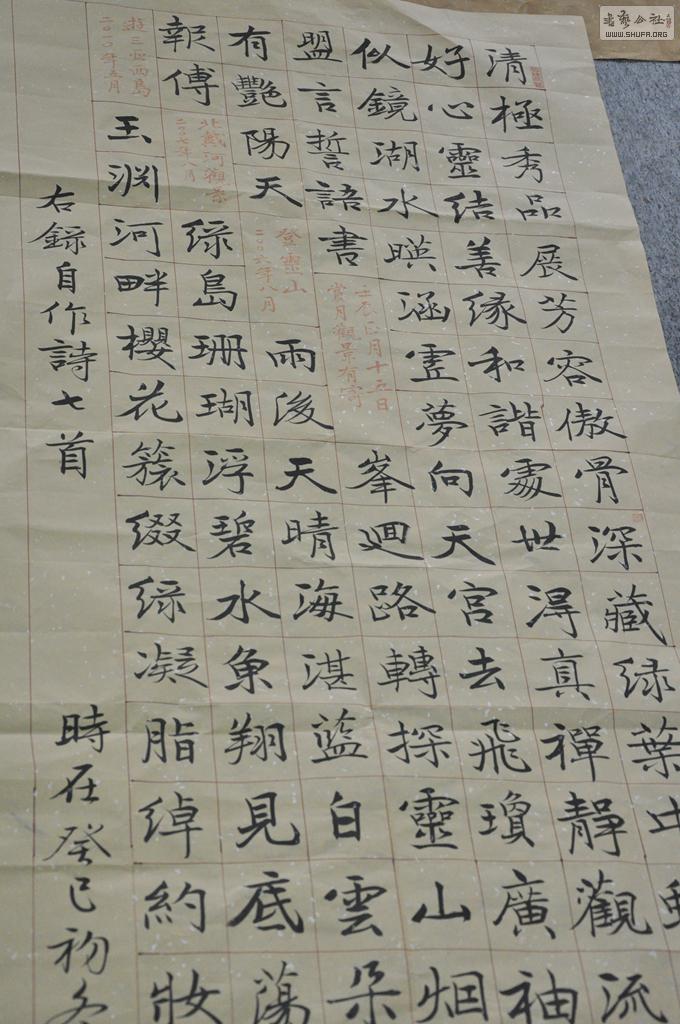 清極秀品展芳容傲骨深藏绿葉中
好心靈結善緣和諧處世淂真禪靜觀流
似鏡湖水暎涵虛夢向天宮去飛瓊廣袖
盟言誓語書
壬辰正月十五日
賞月觀景有寄
峯迴路轉探靈山烟
有艷陽天
登靈山
二〇〇六年八月
雨後天晴海湛藍白雲朵
報傅
北戴河觀景
二〇〇七年八月
绿島珊瑚浮碧水魚翔見底蕩
遊三亞西島
二〇一〇年五月
玉淵河畔櫻花簇綴绿凝脂綽約妝
右錄自作詩七首
時在癸巳初冬
書藝公社
WWW.SHUFA.ORG